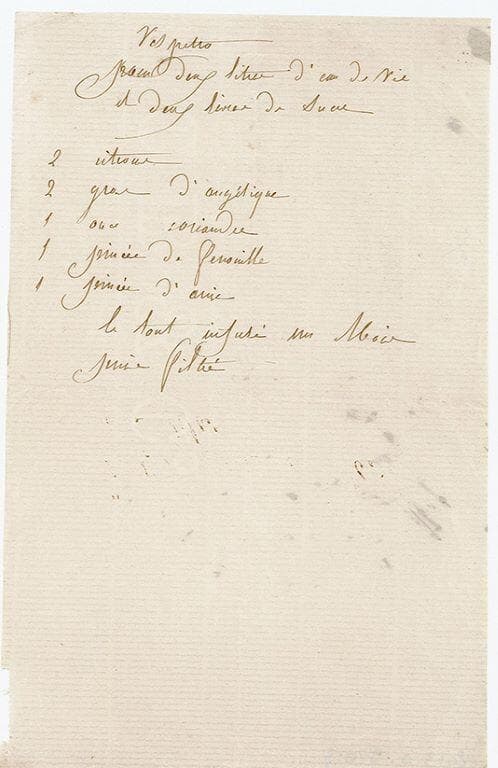 Vespetro
pour deux litres d'eau de vie
et deux livres de sucre
2 citrons
2 gros d'angélique
1 once coriandre
1 pincée de fenouille
1 pincée d'anis
le tout infusé un Mois
puis filtré